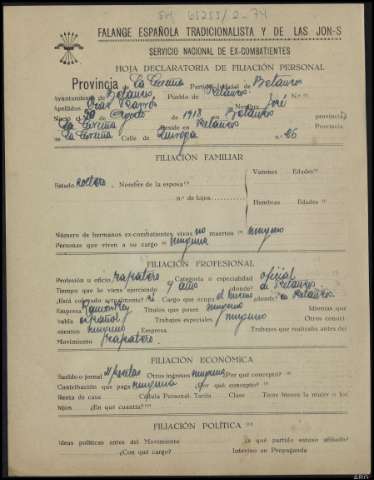 FALANGE ESPAÑOLA TRADICIONALISTA Y DE LAS JON-S
SERVICIO NACIONAL DE EX-COMBATIENTES
HOJA DECLARATORIA DE FILIACIÓN PERSONAL
Provincia La Coruña Partido Judicial de Betanzos
Ayuntamiento de Betanzos Pueblo de Betanzos
Apellidos Díaz Nombre José
Nació el 20 de Agosto de 1918 Betanzos provincia
La Coruña Reside en Betanzos Provincia
La Coruña Calle de n.º 26
FILIACIÓN FAMILIAR
Estado soltero. Nombre de la esposa
n.º de hijos
Varones Edades
Hembras Edades
Número de hermanos ex-combatientes vivos no muertos ninguno
Personas que viven a su cargo ninguna
FILIACIÓN PROFESIONAL
Profesión u oficio zapatero Categoría o especialidad oficial
Tiempo que lo viene ejerciendo años ¿dónde? de Betanzos
¿Está colocado actualmente? si Cargo que ocupa el mismo ¿dónde? en Betanzos
Empresa Títulos que posee ninguno Idiomas que
habla español Trabajos especiales ninguno Otros conoci-
mientos ninguno Empresa Trabajos que realizaba antes del
Movimiento zapatero.
FILIACIÓN ECONÓMICA
Sueldo o jornal Otros ingresos ninguno ¿Por qué concepto?
Contribución que paga ninguna ¿Por qué concepto?
Renta de casa Cédula Personal: Tarifa Clase Tiene bienes la mujer o los
hijos ¿En qué cuantía?
FILIACIÓN POLÍTICA
Ideas políticas antes del Movimiento ¿a qué partido estuvo afiliado?
¿Con qué cargo? Intervino en Propaganda